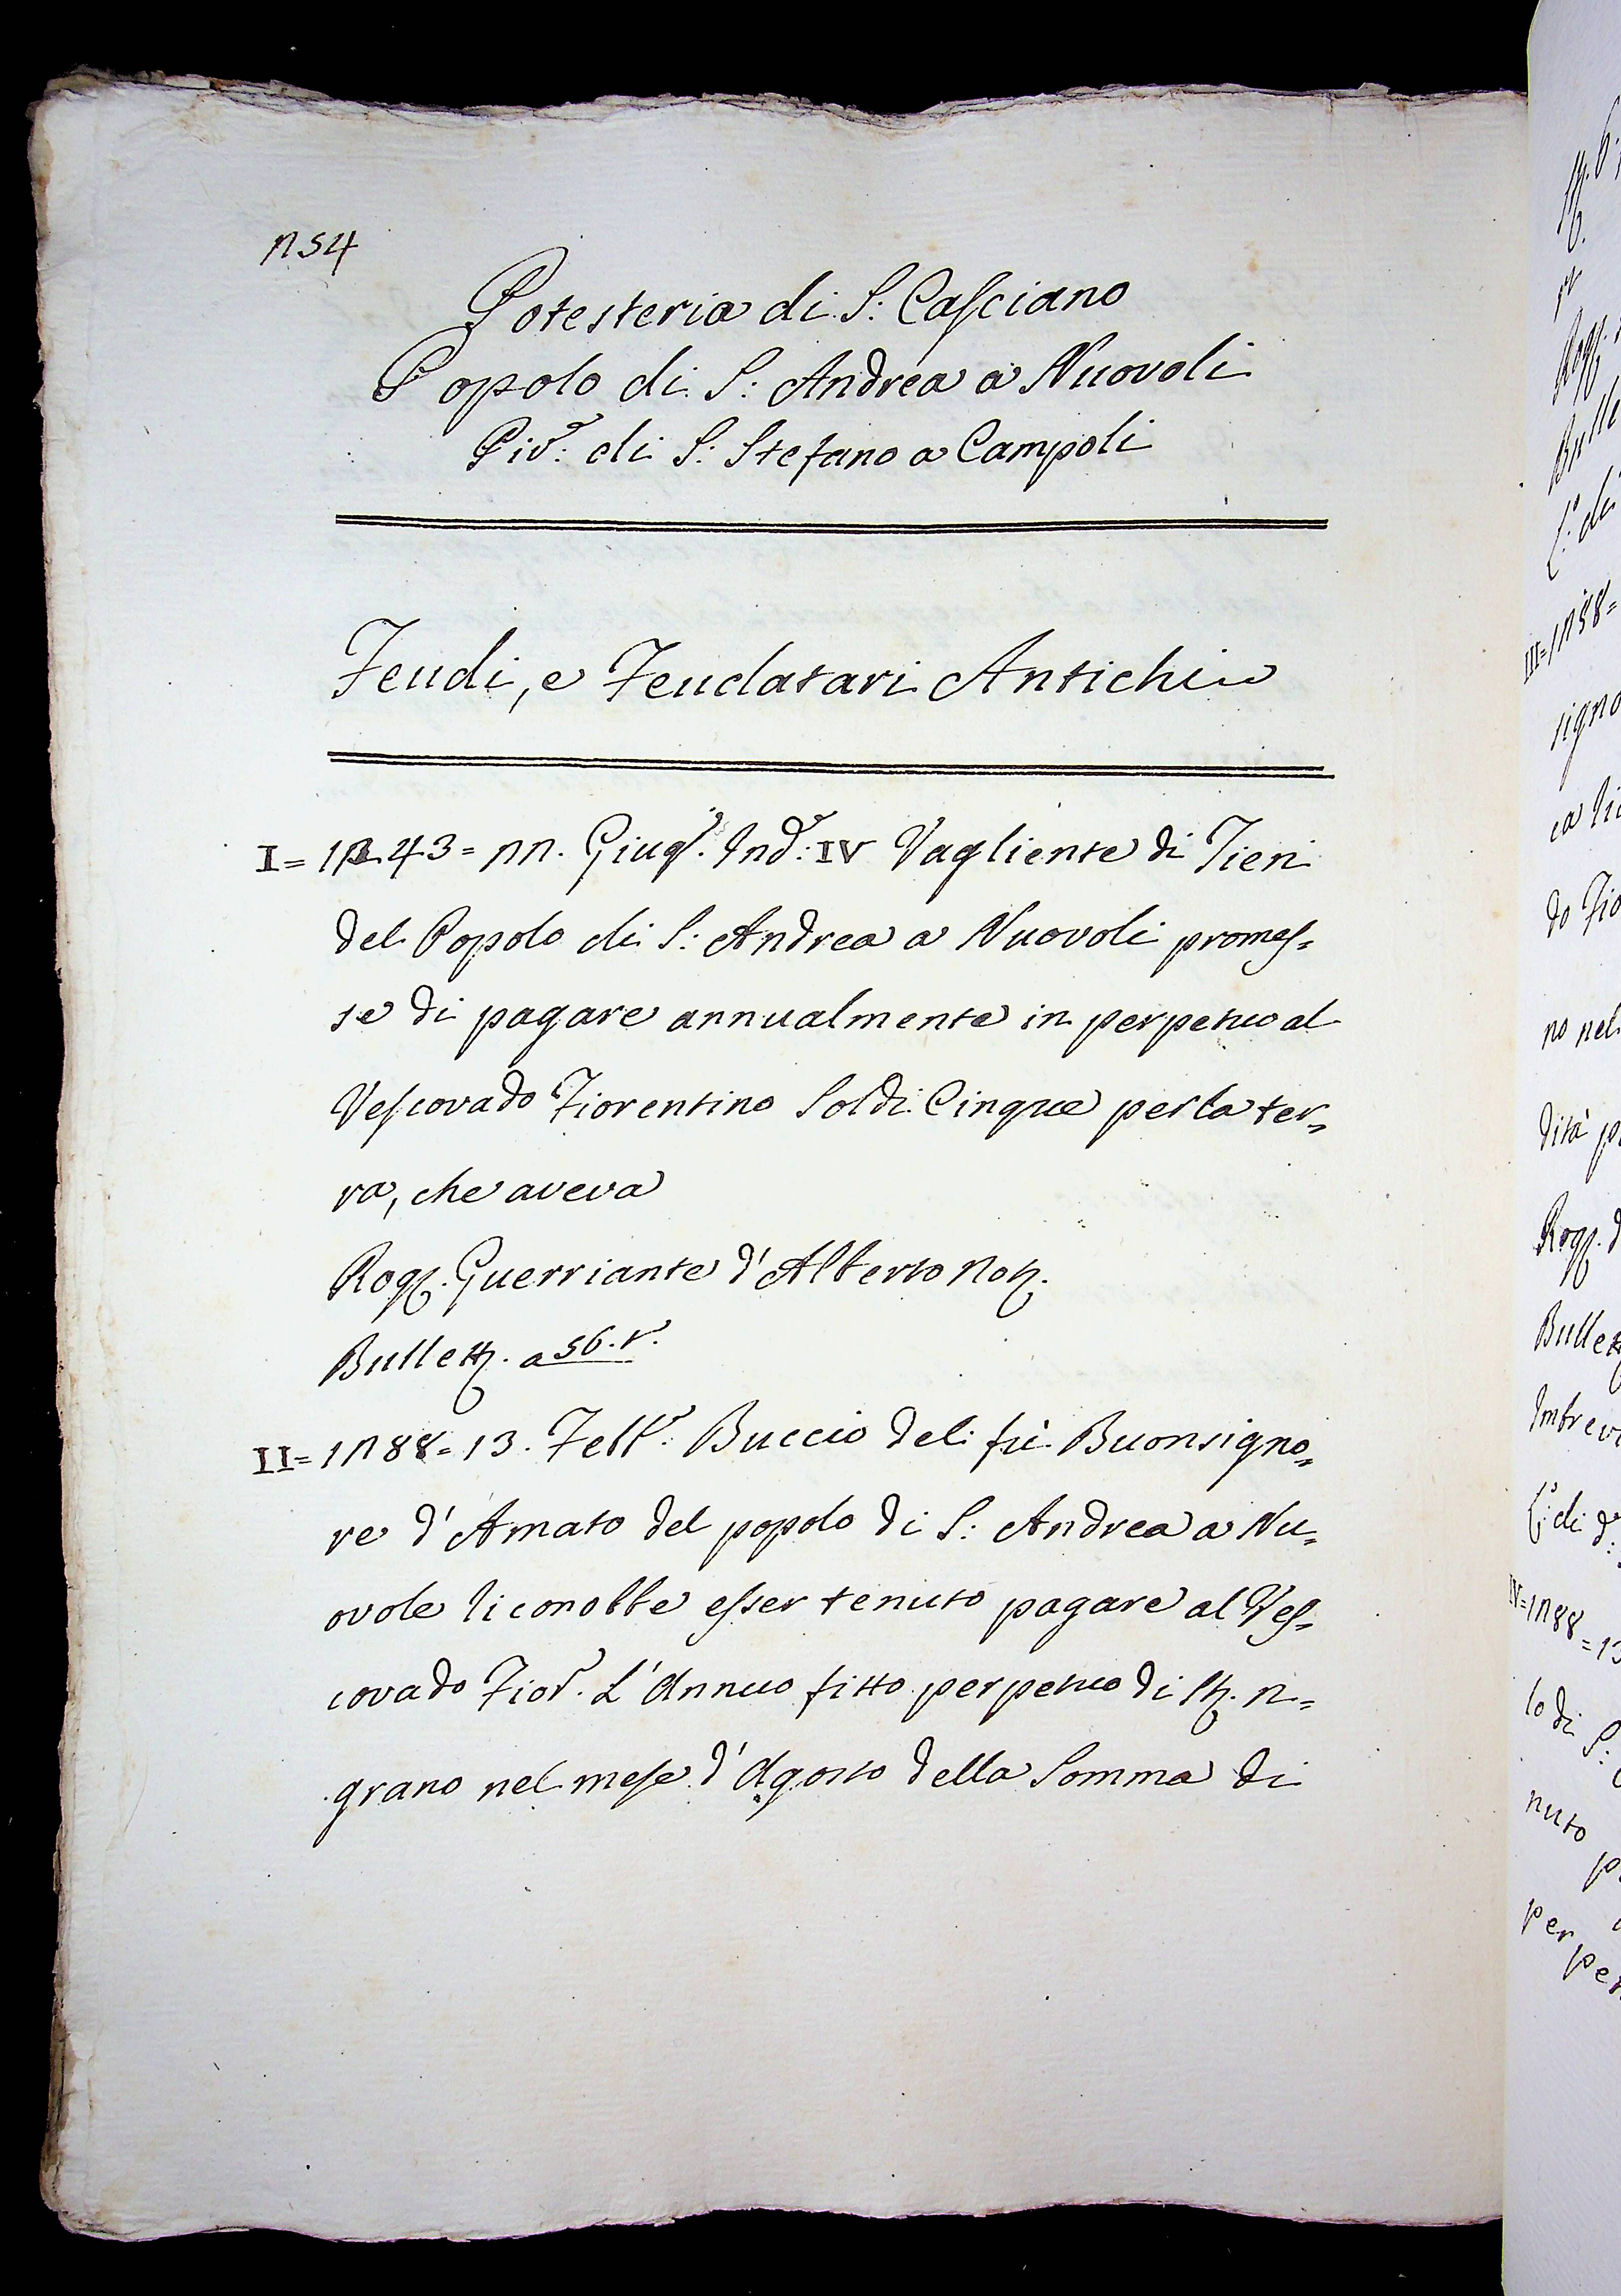 254
Potesteria di S: Casciano
Popolo di S: Andrea a Nuovoli
Piv.e: di S: Stefano a Campoli
Feudi, e Feudatari Antichi
I= 1243= 22. Giug.o Ind.e: IV Vagliente di Tieri
del Popolo di S: Andrea a Nuovoli promes=
se di pagare annualmente in perpetuo al
Vescovado Fiorentino Soldi Cinque per la ter=
ra, che aveva
Rog. Guerriante d'Alberto Not.
Bullett. a 56. t.
II= 1288= 13. Febb.o: Buccio del fù Buonsigno=
re d'Amato del popolo di S: Andrea a Nu=
ovole riconobbe esser tenuto pagare al Ves=
covado Fior.o L'Annuo fitto perpetuo di st. 2=
grano nel mese d'Agosto della Somma di
Rog.
Bulle
III= 1258=
signo
do Fio
no nel
dità p
Rog. d
Bullett
Imbrevi
IV= 1288= 13
lo di S:
nuto p
per
per